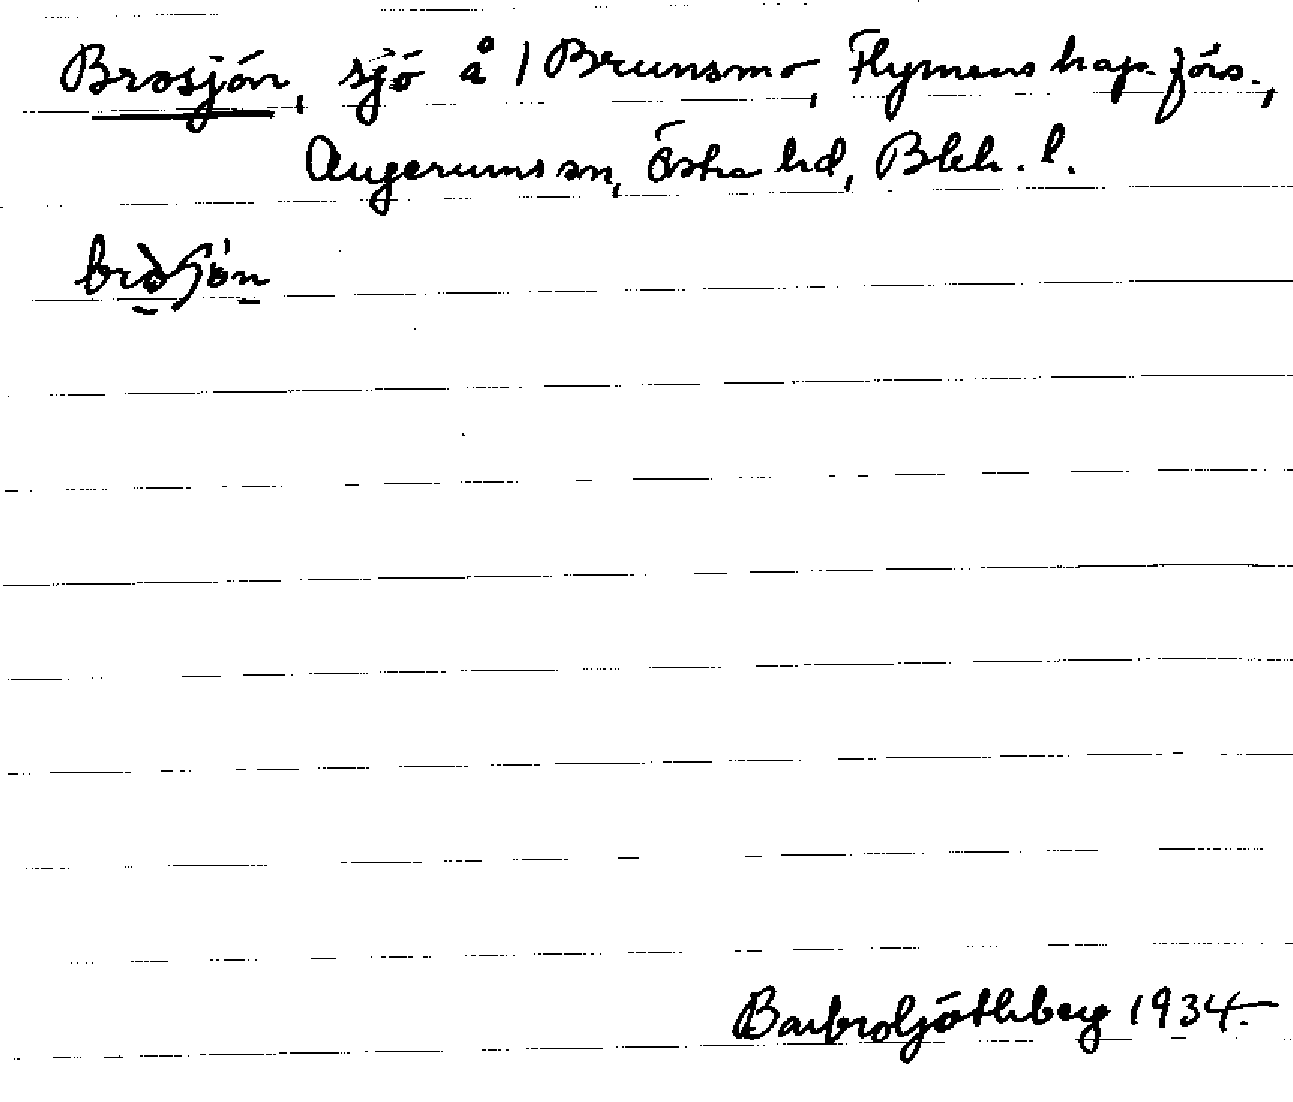 Brosjön, sjö å 1 Brunsmo, Flymens kap. förs.,
Augerums sn, Östra hd, Blek. l.
Barbro Göthberg 1934.